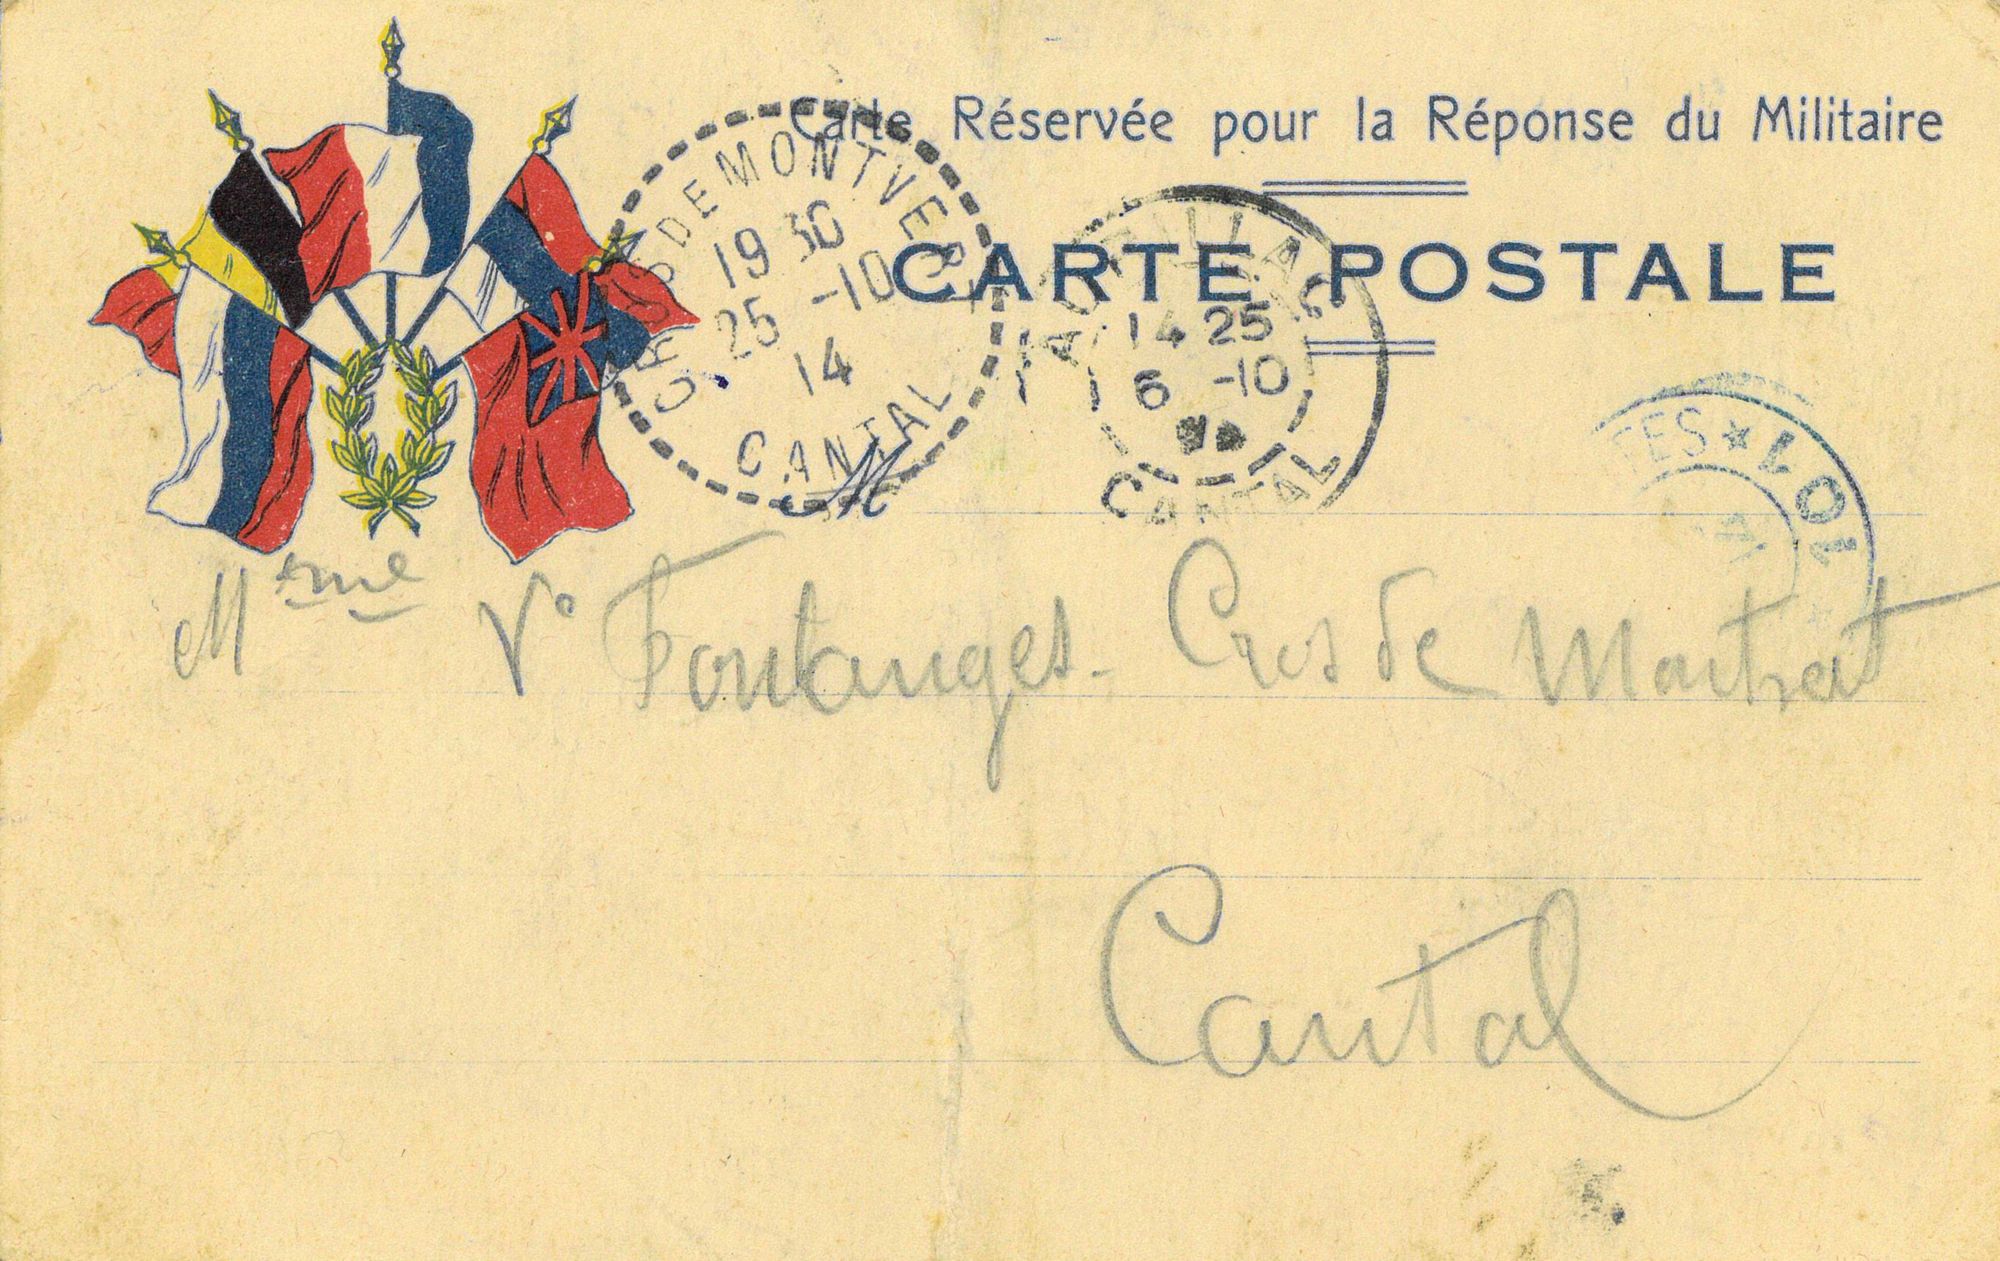 Carte Réservée pour la Réponse du Militaire
CARTE POSTALE
CROS DE MONTVERT
19 30
25 -10
14
CANTAL
AURILLAC
14 25
6 -10
CANTAL
TES ★ 101
M
Mme Ve Fontanges - Cros de Montvert
Cantal